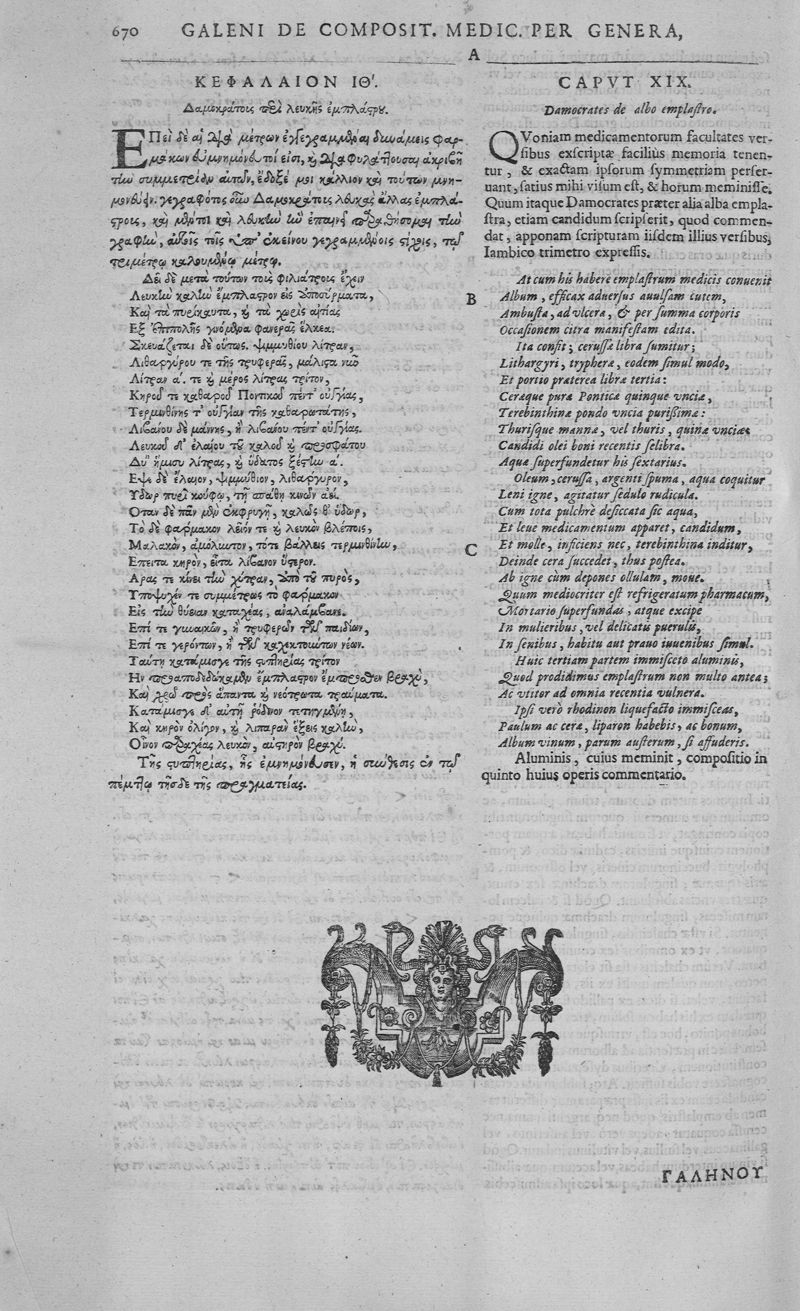 670 GALENI DE COMPOSIT. MEDIC. PER GENERA,
A
ΚΕΦΑΛΑΙΟΝ ΙΘʹ.
Δαμοκράτους περὶ λευκῆς ἐμπλάστρου.
ΕΠεὶ δὲ αἱ διὰ μέτρων ἐγγεγραμμέναι δυνάμεις φαρ-
μάκων εὐμνημόνευτοί εἰσι, καὶ διαφυλάττουσαι ἀκριβῆ
τὴν συμμετρίαν αὐτῶν, ἔδοξέ μοι κάλλιον καὶ τούτων μνη-
μονεῦσαι. γεγραφότος οὖν Δαμοκράτους λευκὰς ἄλλας ἐμπλά-
στρους, καὶ μέντοι καὶ λευκὴν ἣν ἐπαινεῖ παραθήσομαι τὴν
γραφὴν, αὐτοῖς τοῖς ὑπ' ἐκείνου γεγραμμένοις στίχοις, τῷ
τριμέτρῳ καλουμένῳ μέτρῳ.
Δεῖ δὲ μετὰ τούτων τοὺς φιλιάτρους ἔχειν
Λευκὴν καλὴν ἔμπλαστρον εἰς ἀποσύρματα,
Καὶ τὰ πυρίκαυτα, καὶ τὰ χωρὶς αἰτίας
Ἐξ ἐπιπολῆς γινόμενα φανερᾶς ἕλκεα.
Σκευάζεται δὲ οὕτως. ψιμμυθίου λίτραν,
Λιθαργύρου τε τῆς τρυφερᾶς, μάλιστα
Λίτραν α. τε καὶ μέρος λίτρας τρίτον,
Κηροῦ τε καθαροῦ Ποντικοῦ πέντ' οὐγγίας,
Τερμινθίνης τ' οὐγγίαν τῆς καθαρωτάτης,
Λιβάνου δὲ μάννης, ἢ λιβάνου πέντ' οὐγγίας.
Λευκοῦ δ' ἐλαίου τοῦ καλοῦ καὶ προσφάτου
Δύ' ἥμισυ λίτρας, καὶ ὕδατος ξέστην α.
Ἕψε δὲ ἔλαιον, ψιμμύθιον, λιθάργυρον,
Ὕδωρ πυρὶ κούφῳ, τῇ σπάθῃ κινῶν ἀεί.
Ὅταν δὲ πᾶν μὲν ἐκφρυγῇ, καλῶς θ' ὕδωρ,
Τὸ δὲ φάρμακον λεῖόν τε καὶ λευκὸν βλέποις,
Μαλακὸν, ἀμόλυντον, τότε βάλλεις τερμινθίνην,
Ἔπειτα κηρὸν, εἶτα λίβανον ὕστερον.
Ἄρας τε κίνει τὴν χύτραν, ἀπὸ τοῦ πυρὸς,
Ὑποψυγέν τε συμμέτρως τὸ φάρμακον
Εἰς τὴν θυείαν καταχέας, ἀναλάμβανε.
Ἐπί τε γυναικῶν, ἢ τρυφερῶν τῶν παιδίων,
Ἐπί τε γερόντων, ἢ τῶν καχεκτούντων νέων.
Ταύτῃ κατάμισγε τῆς στυπτηρίας τρίτον
Ἣν προαποδεδώκαμεν ἔμπλαστρον ἔμπροσθεν βραχὺ,
Καὶ χρῶ πρὸς ἅπαντα καὶ νεότρωτα τραύματα.
Κατάμισγε δ' αὐτῇ ῥόδινον τετηγμένῃ,
Καὶ κηρὸν ὀλίγον, καὶ λιπαρὰν ἕξεις καλὴν,
Οἶνον παραχέας λευκὸν, αὐστηρὸν βραχύ.
Τῆς στυπτηρίας, ἧς ἐμνημόνευσεν, ἡ σύνθεσις ἐν τῷ
πέμπτῳ τῆσδε τῆς πραγματείας.
CAPVT XIX.
Damocrates de albo emplastro.
QVoniam medicamentorum facultates ver-
sibus exscriptæ faciliùs memoria tenen-
tur, & exactam ipsorum symmetriam perser-
uant, satius mihi visum est, & horum meminisse.
Quum itaque Damocrates præter alia alba empla-
stra, etiam candidum scripserit, quod commen-
dat, apponam scripturam iisdem illius versibus,
Iambico trimetro expressis.
At cum his habere emplastrum medicis conuenit
B
Album, efficax aduersus auulsam cutem,
Ambusta, ad vlcera, & per summa corporis
Occasionem citra manifestam edita.
Ita confit; cerussæ libra sumitur;
Lithargyri, tryphera, eodem simul modo,
Et portio præterea libræ tertia:
Ceræque puræ Pontica quinque vncia,
Terebinthinæ pondo vncia purissima:
Thurisque manna, vel thuris, quina vnciæ.
Candidi olei boni recentis selibra.
Aqua superfundetur his sextarius.
Oleum, cerussa, argenti spuma, aqua coquitur
Leni igne, agitatur sedulo rudicula.
Cum tota pulchrè desiccata sic aqua,
Et leue medicamentum apparet, candidum,
C
Et molle, inficiens nec, terebinthina inditur,
Deinde cera succedet, thus postea.
Ab igne cùm depones ollulam, moue.
Quum mediocriter est refrigeratum pharmacum,
Mortario superfundas, atque excipe
In mulieribus, vel delicatis puerulis,
In senibus, habitu aut prauo iuuenibus simul.
Huic tertiam partem immisceto aluminis,
Quod prodidimus emplastrum non multo antea;
Ac vtitor ad omnia recentia vulnera.
Ipsi verò rhodinon liquefacto immisceas,
Paulum ac cera, liparon habebis, ac bonum,
Album vinum, parum austerum, si affuderis.
Aluminis, cuius meminit, compositio in
quinto huius operis commentario.
ΓΑΛΗΝΟΥ